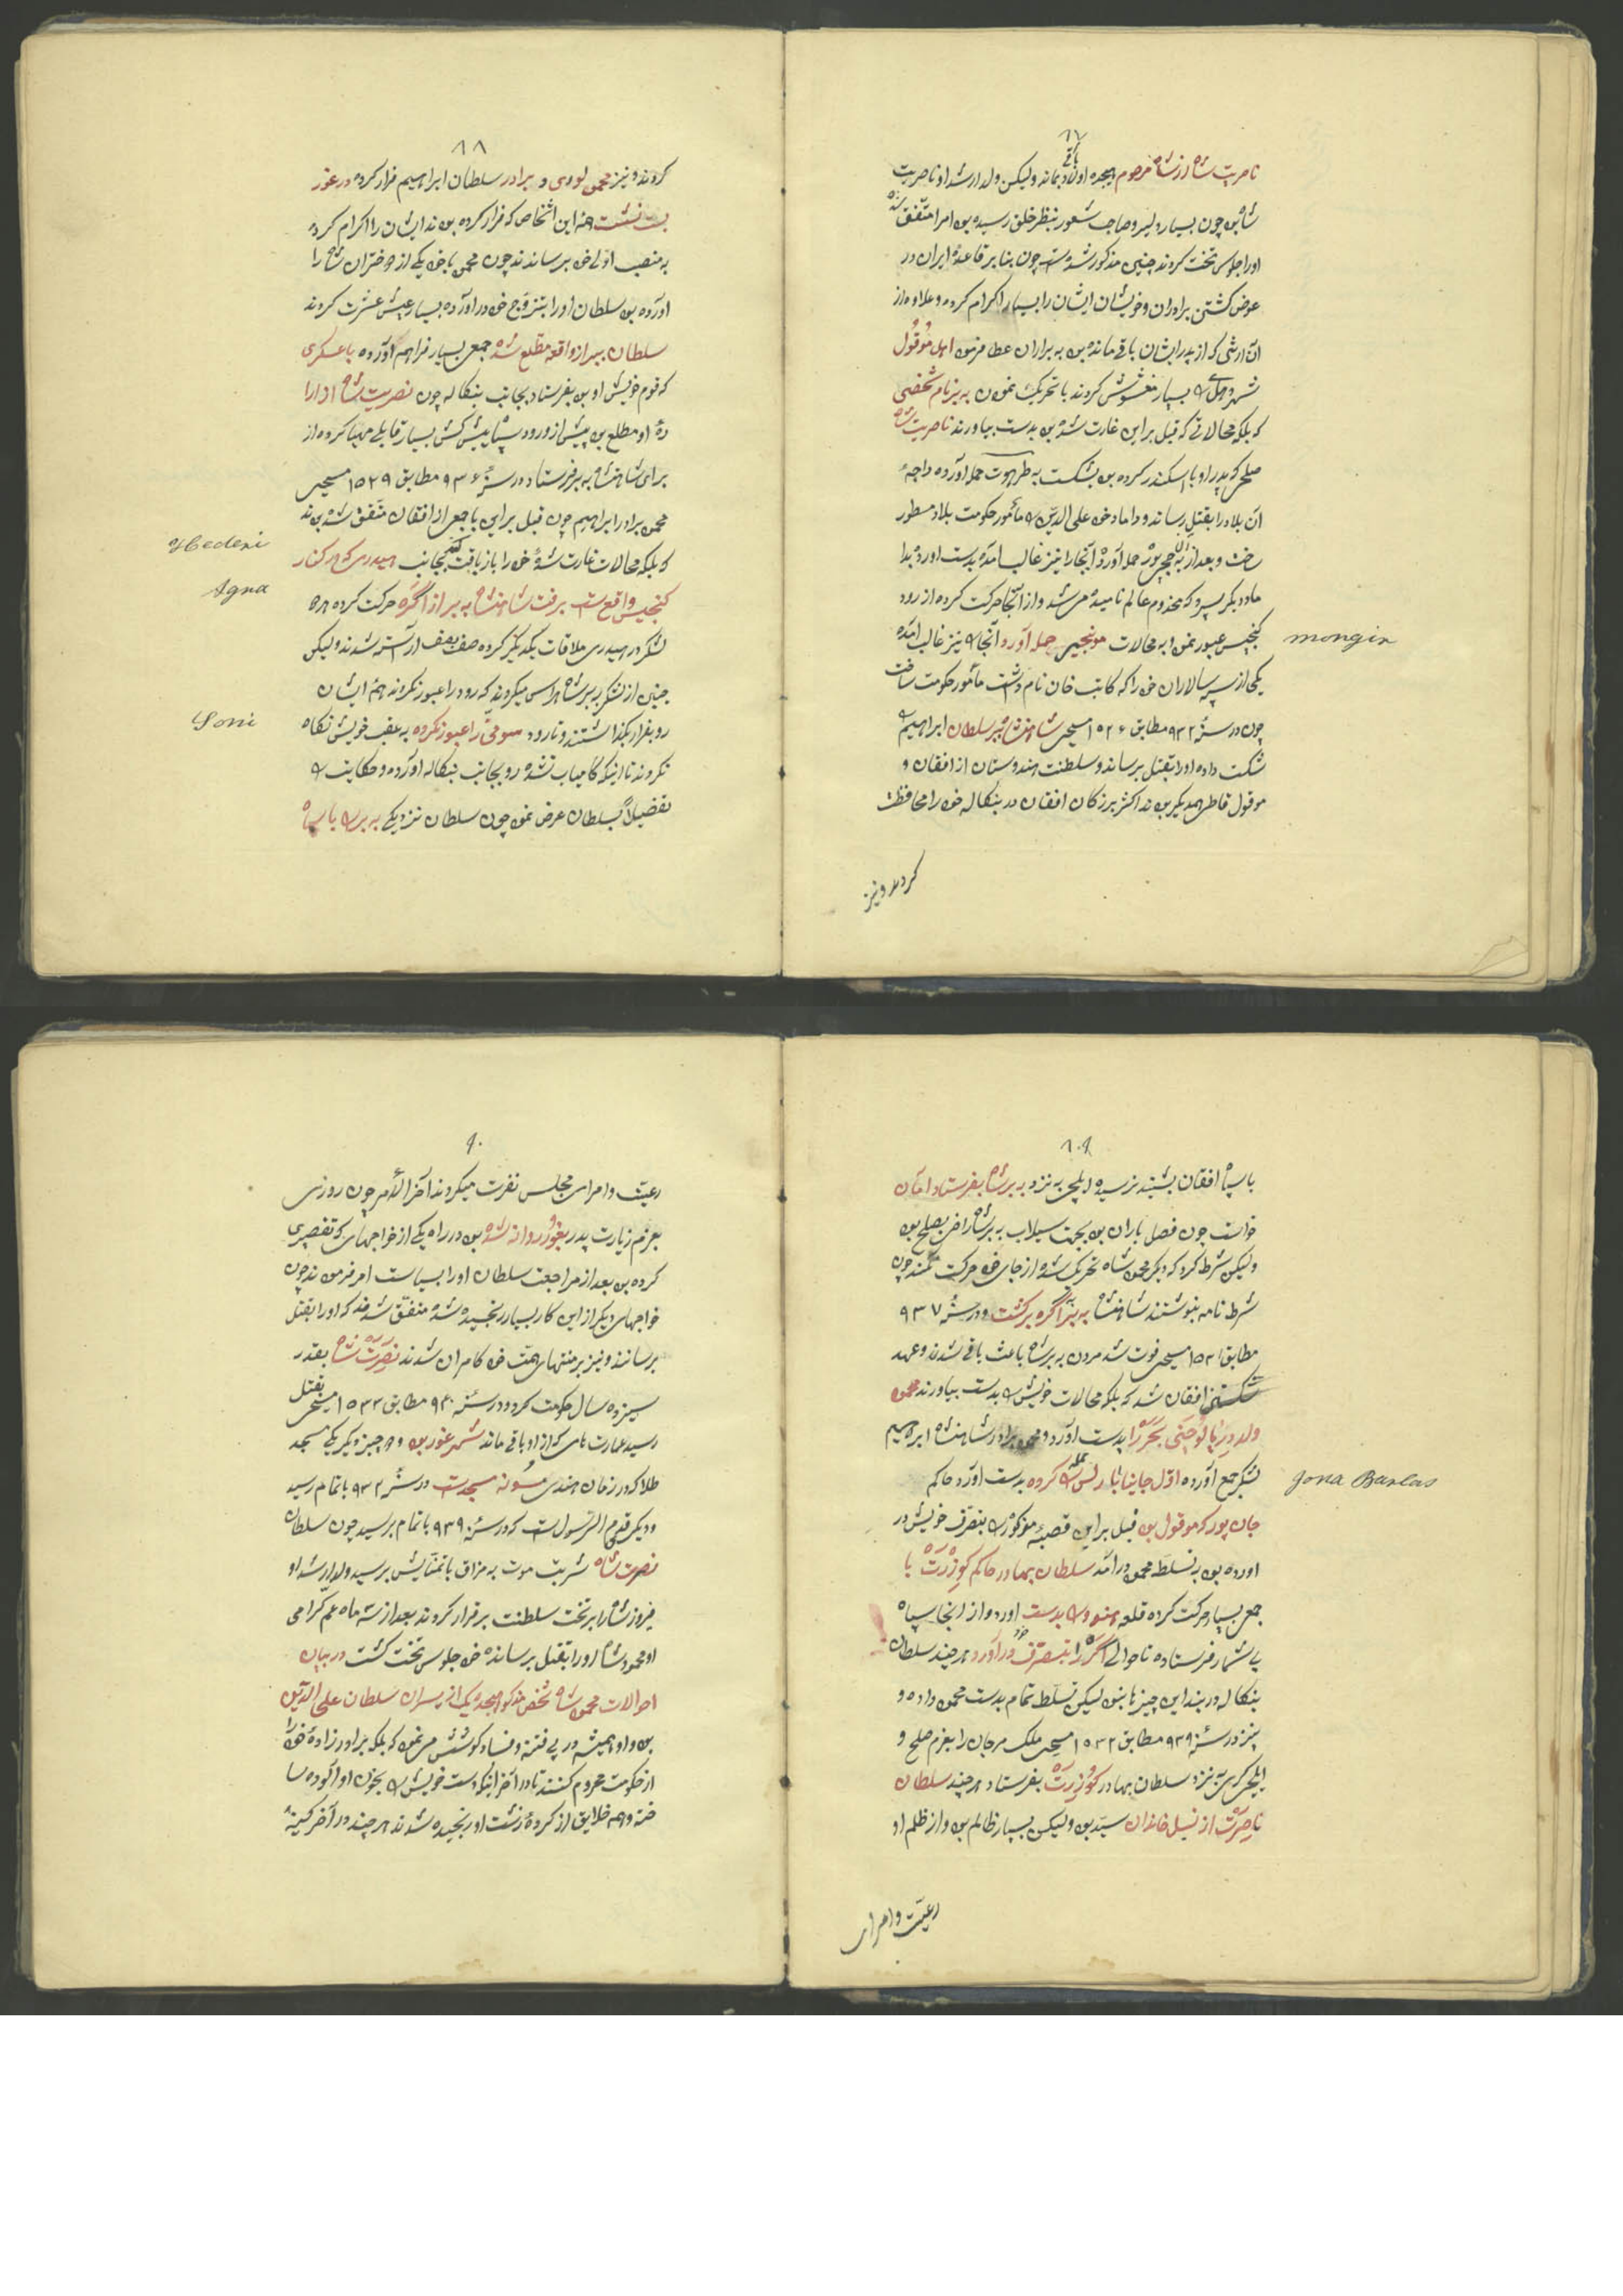 ۸۷
ناصریت شاه از شاه مرحوم هیجده اولاد باقی بمانده ولیکن ولد ارشد او ناصریت
شاه بود چون بسیار دلیر و صاحب شعور بنظر خلق رسیده بود امرا متفق شده
او را جلوس تخت کردند چنین مذکور شده است چون بنا بر قاعدهٔ ایران در
عوض کشتن برادران و خویشان ایشان را بسیار اکرام کرده و علاوه از
آن ارثی که از پدر ایشان باقی مانده بود به برادران عطا فرمود اهل موقول
شهر دهلی بسیار مغشوش کردند با تحریک نمودن به ببر نام شخصی
که بلکه محالاتی که قبل بر این غارت شده بود بدست بیاورند ناصریت شاه
صلحی که پدر او با اسکندر کرده بود بشکست به طرهوت حمله آورده راجهٔ
آن بلاد را بقتل رسانده و داماد خود علی الدین را مأمور حکومت بلاد مسطور
ساخت و بعد از آن به حمله آورد آنجا را نیز غالب آمده بدست آورده
داماد دیگر سپرد که مخدوم عالم نامیده می شد و از آنجا حرکت کرده از رود
گنجیس عبور نمود به محالات مونجیر حمله آورد آنجا را نیز غالب آمده
mongir
یکی از سپه سالاران خود را که کاتب خان نام داشت مأمور حکومت ساخت
چون در سنهٔ ۹۳۲ مطابق ۱۵۲۶ مسیحی شاهنشاه ببر سلطان ابراهیم را
شکست داده او را بقتل برساند و سلطنت هندوستان از افغان و
موقول قاطی همدیگر بودند اکثر بزرگان افغان در بنگاله خود را محافظت
کردند و نیز
۸۸
کردند و نیز محمود لودی و برادر سلطان ابراهیم فرار کرده در غور
بست نشست همه این اشخاص که فرار کرده بودند ایشان را اکرام کرده
به منصب اولی خود برساندند چون محمود با خود یکی از دختران شاه را
آورده بود سلطان او را بتزوج خود در آورده بسیار عیش عشرت کردند
سلطان ببر از واقعه مطلع شده جمعی بسیار فراهم آورده با عسکری
که قوم خویش او بود بفرستاد بجانب بنگاله چون نصریت شاه از ارا
دهٔ او مطلع بود پیش از ورود سپاه پیش کش بسیار قابلی مهیا کرده از
برای شاهنشاه ببر فرستاد در سنهٔ ۹۳۶ مطابق ۱۵۲۹ مسیحی
محمود برادر ابراهیم چون قبل بر این با جمعی از افغان متفق شده بودند
که بلکه محالات غارت شدهٔ خود را باز یافت کنند بجانب هیدری که در کنار
Hederi
گنجیس واقع است برفت شاهنشاه ببر از آگره حرکت کرده هر دو
Agra
لشکر در هیدری ملاقات یکدیگر کرده صف بصف آراسته شدند ولیکن
چنین از لشکر ببر شاه هراس میکردند که رود را عبور نکرده همهٔ ایشان
رو بفرار بگذاشتند و تا رود سونی را عبور نکرده به عقب خویش نگاه
Soni
نکردند تا اینکه کامیاب نشده رو بجانب بنگاله آورده و حکایت را
تفضیلاً بسلطان عرض نمود چون سلطان نزدیکی ببر را با سپاه
۸۰۹
با سپاه افغان بشنید ترسیده ایلچی به نزد ببر شاه بفرستاد امان
خواست چون فصل باران بود بجهت سیلاب ببر شاه راضی بصلح بود
ولیکن شرط کرد که دیگر محمود شاه تحریک نشده از جای خود حرکت نکند چون
شرط نامه بنوشتند شاهنشاه ببر به آگره برگشت و در سنهٔ ۹۳۷
مطابق ۱۵۳۱ مسیحی فوت شد مردن ببر شاه باعث یاغی شدند و عهد
شکستن افغان شد که بلکه محالات خویش را بدست بیاورند محمود
ولد بدست آورد و محمود برادر شاهنشاه ابراهیم
لشکر جمع آورده اول جاینا بارلس را حمله کرده بدست آورد حاکم
Jona Barlas
جان پور که موقول بود قبل بر این قصبهٔ مذکور را بتصرف خویش در
آورده بود به تسلط محمود در آمد سلطان بهادر حاکم گوزرت با
جمعی بسیار حرکت کرده قلعه بدست آورد و از آنجا سپاه
بی شمار فرستاده تا حوالی آگره را بتصرف خود در آورد هر چند سلطان
بنگاله در بند این چیزها نبود لیکن تسلط تمام بدست محمود داده و
نیز در سنهٔ ۹۳۹ مطابق ۱۵۳۲ مسیحی ملک مرجان را بعزم صلح و
ایلچی گری به نزد سلطان بهادر گوزرت بفرستاد هر چند سلطان
ناصرت از نسل خاندان سید بود ولیکن بسیار ظالم بود و از ظلم او
رعیت و امرای
۹۰
رعیت و امرای مجلس نفرت میکردند آخر الأمر چون روزی
بعزم زیارت پدر بغور روانه شده بود در راه یکی از خواجهای که تقصیری
کرده بود بعد از مراجعت سلطان او را بسیاست امر فرمودند چون
خواجهای دیگر از این کار بسیار رنجیده شده متفق شدند که او را بقتل
برسانند و نیز بر منتهای همت خود کامران شدند نصرت شاه بقدر
سیزده سال حکومت کرد و در سنهٔ ۹۴۰ مطابق ۱۵۳۳ مسیحی بقتل
رسید عمارت های که از او باقی ماند شهر غور بود و هر چیز دیگر یکی مسجد
طلا که در زبان هندی سونه مسجد است در سنهٔ ۹۳۲ باتمام رسید
و دیگر قدم الرسول است که در سنهٔ ۹۳۹ باتمام برسید چون سلطان
نصرت شاه شربت موت به مزاق باتمنایش برسید ولد ارشد او
فیروز شاه را بر تخت سلطنت برقرار کردند بعد از سه ماه عم گرامی
او محمود شاه او را بقتل برسانده خود جلوس تخت گشت در بیان
احوالات محمود شاه شخص مذکور هیجده یک از پسران سلطان علی الدین
بود و او همیشه در پی فتنه و فساد کوشش می نمود که بلکه برادر زادهٔ خود را
از حکومت محروم کنند تا در آخر اینکه دست خویش را بخون او آلوده سا
خته و همه خلایق از کردهٔ زشت او رنجیده شدند هر چند در آخر کینهٔ